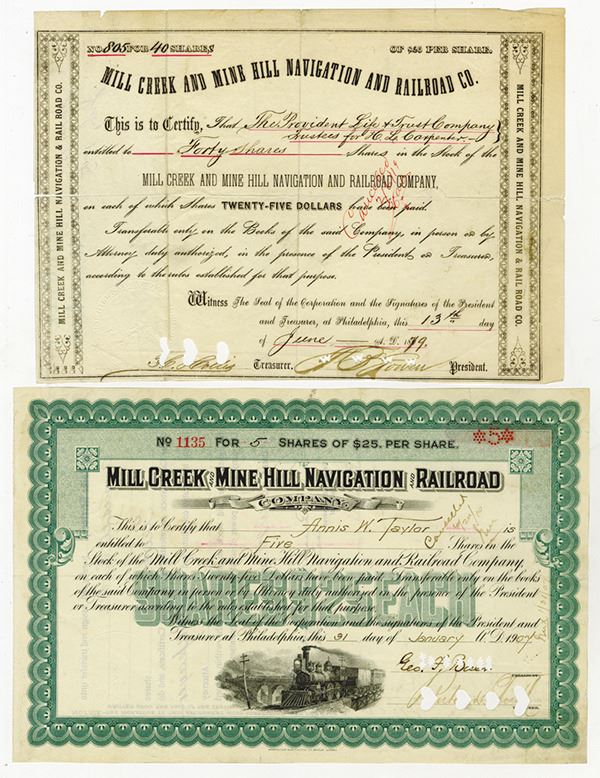 No 805 FOR 40 SHARES OF $25 PER SHARE.
MILL CREEK AND MINE HILL NAVIGATION AND RAILROAD CO.
This is to Certify, That The Provident Life & Trust Company
Trustees for H. L. Carpenter
entitled to Forty Shares Shares in the Stock of the
MILL CREEK AND MINE HILL NAVIGATION AND RAILROAD COMPANY,
on each of which Shares TWENTY-FIVE DOLLARS have been paid.
Transferable only on the Books of the said Company, in person or by
Attorney duly authorized, in the presence of the President or Treasurer,
according to the rules established for that purpose.
Witness The Seal of the Corporation and the Signatures of the President
and Treasurer, at Philadelphia, this 13th day
of June A.D. 1879.
Treasurer. President.
MILL CREEK AND MINE HILL NAVIGATION & RAIL ROAD CO.
MILL CREEK AND MINE HILL NAVIGATION & RAIL ROAD CO.
Cancelled
No 1135 FOR 5 SHARES OF $25. PER SHARE.
*5*
MILL CREEK AND MINE HILL NAVIGATION AND RAILROAD
COMPANY.
This is to Certify that Annis W. Taylor is
entitled to Five Shares in the
Stock of the Mill Creek and Mine Hill Navigation and Railroad Company,
on each of which Shares Twenty five Dollars have been paid. Transferable only on the books
of the said Company in person or by Attorney duly authorized in the presence of the President
or Treasurer according to the rules established for that purpose.
Witness the Seal of the Corporation and the signatures of the President and
Treasurer at Philadelphia, this 31 day of January A.D. 1907
Cancelled
Geo. F. Baer